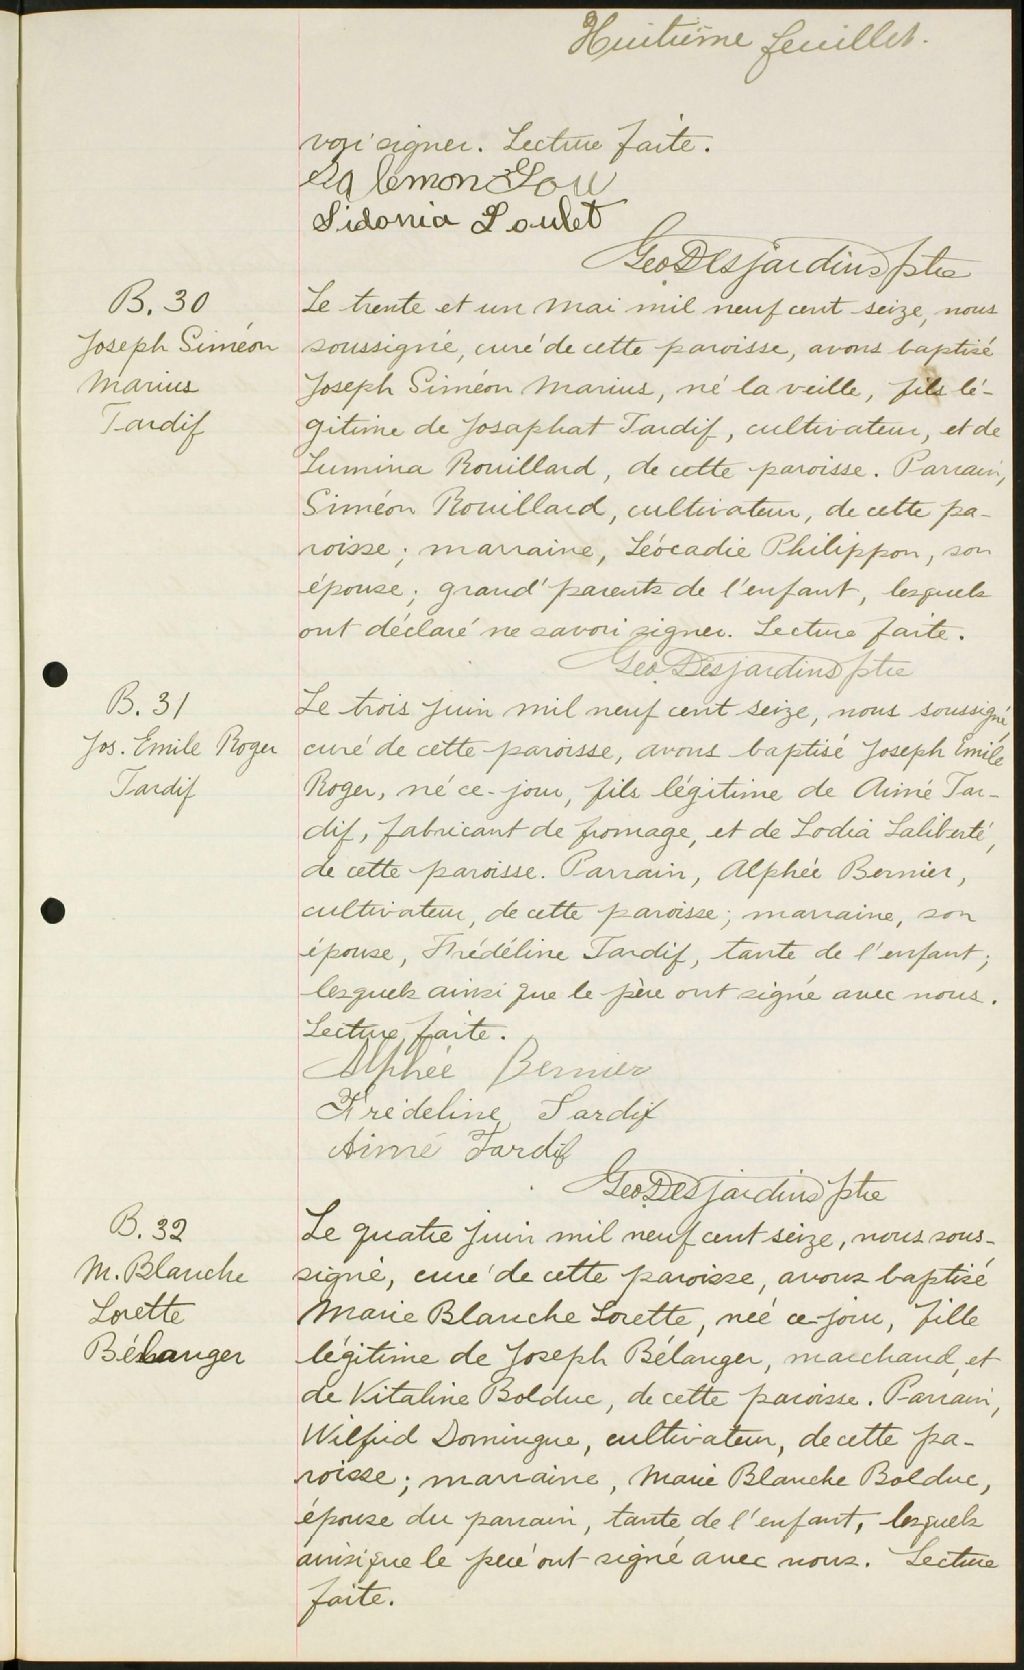 Huitième feuillet.
voir signer. Lecture faite.
Sidonia Poulet
Geo Desjardins ptre
B. 30
Joseph Siméon
Marius
Tardif
Le trente et un mai mil neuf cent seize, nous
soussigné, curé de cette paroisse, avons baptisé
Joseph Siméon Marius, né la veille, fils lé-
gitime de Josaphat Tardif, cultivateur, et de
Lumina Rouillard, de cette paroisse. Parrain,
Siméon Rouillard, cultivateur, de cette pa-
roisse; marraine, Léocadie Philippon, son
épouse; grand'parents de l'enfant, lesquels
ont déclaré ne savoir signer. Lecture faite.
Geo Desjardins ptre
B. 31
Jos. Emile Roger
Tardif
Le trois juin mil neuf cent seize, nous soussigné,
curé de cette paroisse, avons baptisé Joseph Emile
Roger, né ce jour, fils légitime de Aimé Tar-
dif, fabricant de fromage, et de Lodia Laliberté,
de cette paroisse. Parrain, Alphée Bernier,
cultivateur, de cette paroisse; marraine, son
épouse, Frédéline Tardif, tante de l'enfant;
lesquels ainsi que le père ont signé avec nous.
Lecture faite.
Alphée Bernier
Fredeline Tardif
Aimé Tardif
Geo Desjardins ptre
B. 32
M. Blanche
Lorette
Bélanger
Le quatre juin mil neuf cent seize, nous sous-
signé, curé de cette paroisse, avons baptisé
Marie Blanche Lorette, née ce jour, fille
légitime de Joseph Bélanger, marchand, et
de Vitaline Bolduc, de cette paroisse. Parrain,
Wilfrid Domingue, cultivateur, de cette pa-
roisse; marraine, Marie Blanche Bolduc,
épouse du parrain, tante de l'enfant, lesquels
ainsi que le père ont signé avec nous. Lecture
faite.